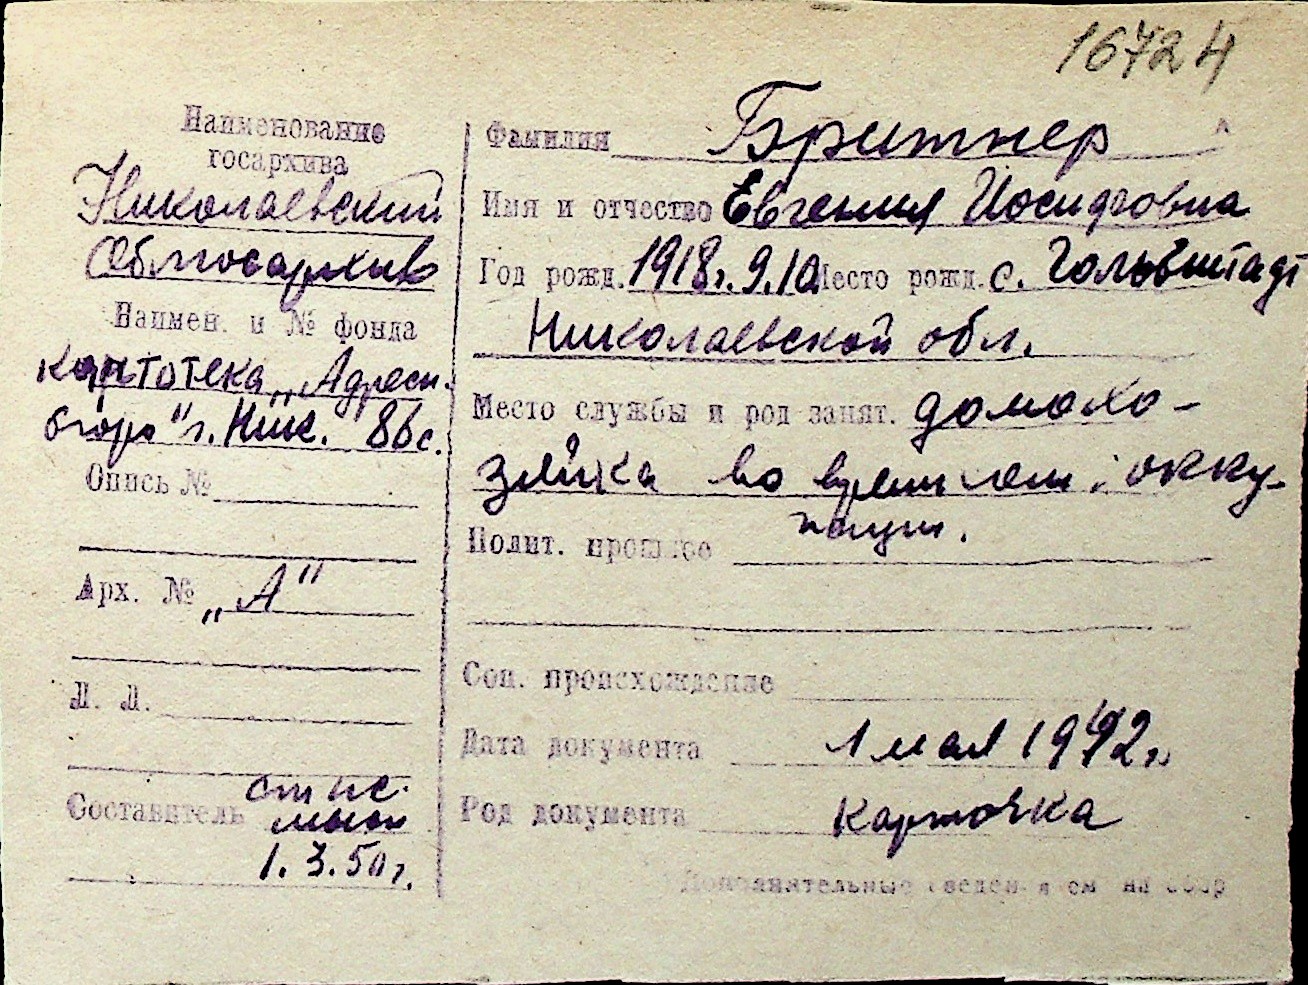 16724
Наименование
госархива
Николаевский
Облгосархив
Наимен. и № фонда
картотека „Адресн.
бюро" г. Ник. 86 с.
Опись №
Арх. № „А"
Л. Л.
Составитель
1.3.50 г.
Фамилия Бритнер
Имя и отчество Евгения Иосифовна
Год рожд. 1918 г. 9.10 Место рожд. с. Гальбштадт
Николаевской обл.
Место службы и род занят. домохо-
зяйка во время нем. окку-
пации.
Полит. прошлое
Соц. происхождение
Дата документа 1 мая 1942 г.
Род документа карточка
Дополнительные сведения см на обор